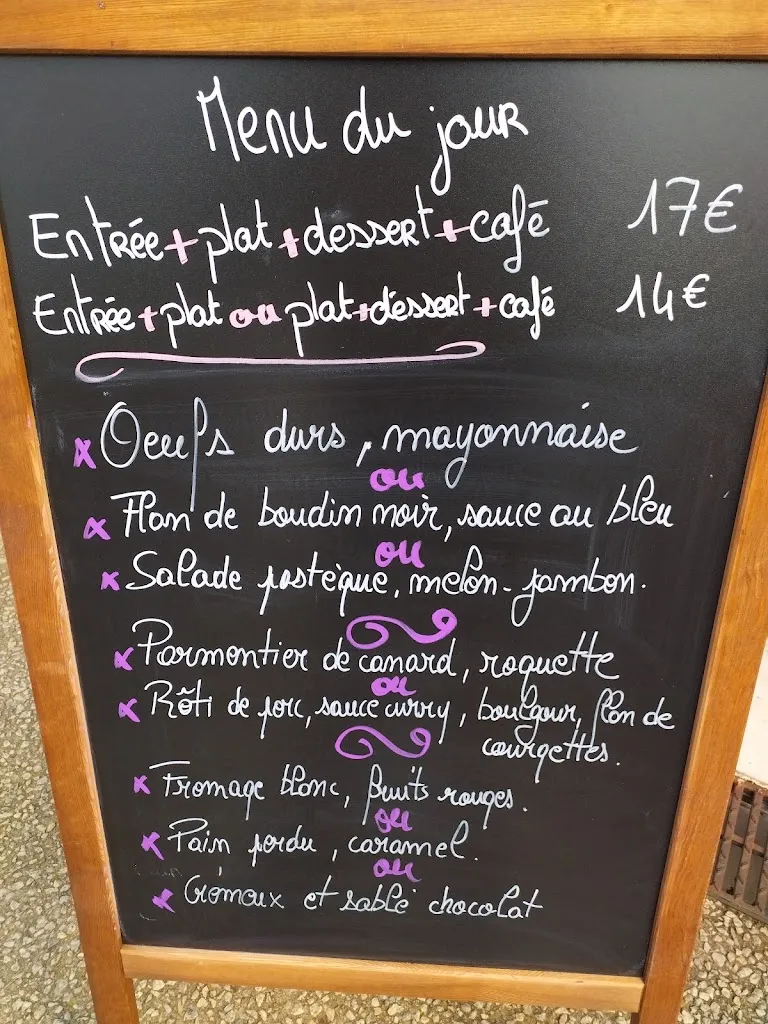 Menu du jour
Entrée+plat+dessert+café 17€
Entrée+plat ou plat+dessert+café 14€
x Oeufs durs, mayonnaise
ou
x Flan de boudin noir, sauce au bleu
ou
x Salade pastèque, melon-jambon.
x Parmentier de canard, roquette
ou
x Rôti de porc, sauce curry, boulgour, flan de
courgettes.
x Fromage blanc, fruits rouges.
ou
x Pain perdu, caramel.
ou
x Crémeux et sablé chocolat